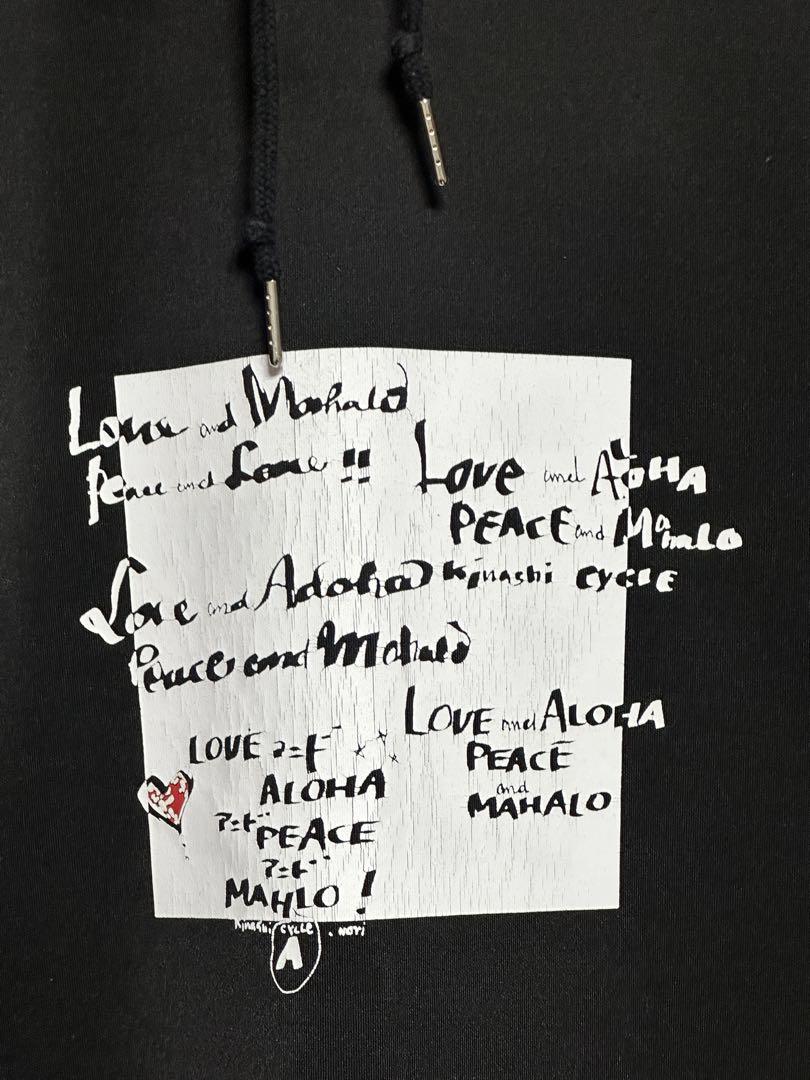 Love and Mahalo
Peace and Love !!
Love and ALOHA
PEACE and Mahalo
Love and Adoha
Kinashi CYCLE
Peace and Mahalo
LOVE and ALOHA
PEACE
and
MAHALO
LOVE アンド
ALOHA
アンド PEACE
アンド
MAHLO !
Kinashi CYCLE . NORI
A